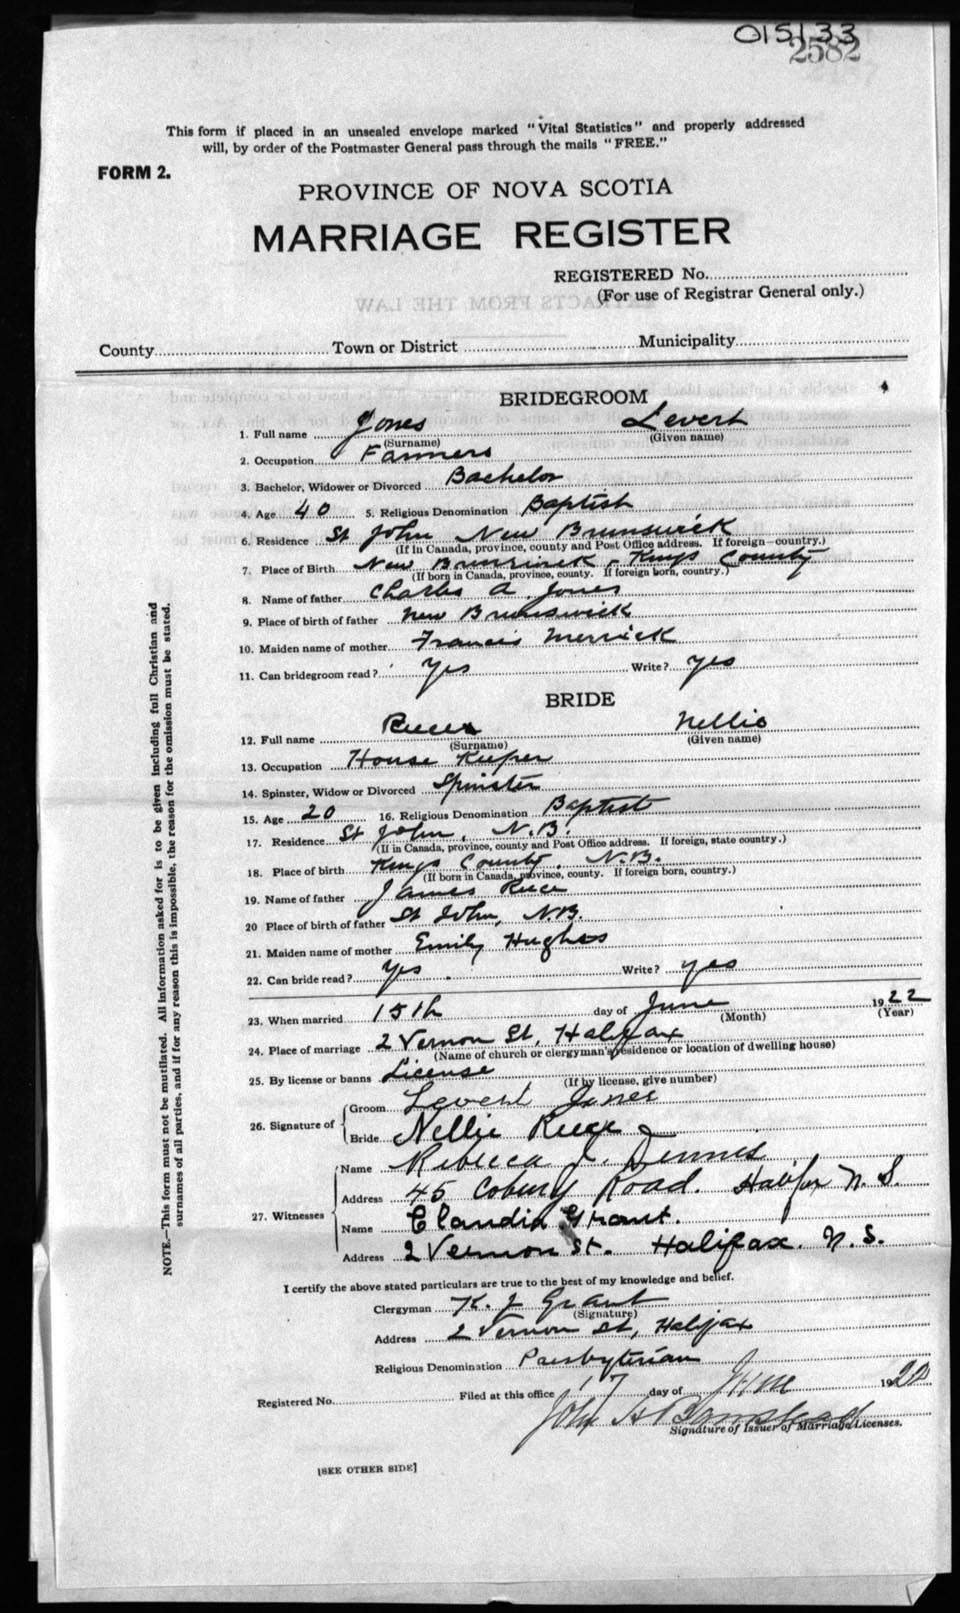 015133
2582
This form if placed in an unsealed envelope marked "Vital Statistics" and properly addressed
will, by order of the Postmaster General pass through the mails "FREE."
FORM 2.
PROVINCE OF NOVA SCOTIA
MARRIAGE REGISTER
REGISTERED No.
(For use of Registrar General only.)
County Town or District Municipality
BRIDEGROOM
1. Full name Jones Levert
(Surname) (Given name)
2. Occupation Farmers
3. Bachelor, Widower or Divorced Bachelor
4. Age 40 5. Religious Denomination Baptist
6. Residence St John New Brunswick
(If in Canada, province, county and Post Office address. If foreign country.)
7. Place of Birth New Brunswick, Kings County
(If born in Canada, province, county. If foreign born, country.)
8. Name of father Charles A. Jones
9. Place of birth of father New Brunswick
10. Maiden name of mother Francis Merrick
11. Can bridegroom read? Yes Write? yes
BRIDE
12. Full name Nellie
(Surname) (Given name)
13. Occupation House Keeper
14. Spinster, Widow or Divorced Spinster
15. Age 20 16. Religious Denomination Baptist
17. Residence St John, N.B.
(If in Canada, province, county and Post Office address. If foreign, state country.)
18. Place of birth Kings County, N.B.
(If born in Canada, province, county. If foreign born, country.)
19. Name of father James Reece
20 Place of birth of father St John, N.B.
21. Maiden name of mother Emily Hughes
22. Can bride read? Yes Write? yes
23. When married 15th day of June 1922
(Month) (Year)
24. Place of marriage 2 Vernon St, Halifax
(Name of church or clergyman's residence or location of dwelling house)
25. By license or banns License
(If by license, give number)
26. Signature of Groom Levert Jones
Bride Nellie Reece
27. Witnesses Name Rebecca J. Dennis
Address 45 Coburg Road. Halifax N.S.
Name Claudia Grant.
Address 2 Vernon St. Halifax. N.S.
I certify the above stated particulars are true to the best of my knowledge and belief.
Clergyman K. J. Grant
(Signature)
Address 2 Vernon St, Halifax
Religious Denomination Presbyterian
Registered No. Filed at this office 17 day of June 1922
John H Barnstead
Signature of Issuer of Marriage Licenses.
[SEE OTHER SIDE]
NOTE.—This form must not be mutilated. All information asked for is to be given including full Christian and
surnames of all parties, and if for any reason this is impossible, the reason for the omission must be stated.